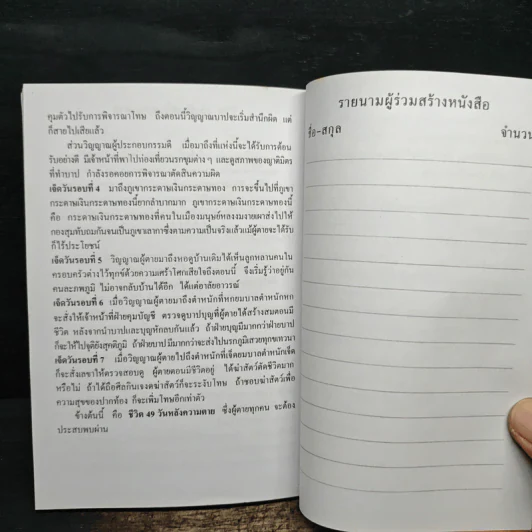 คุมตัวไปรับการพิจารณาโทษ ถึงตอนนี้วิญญาณบาปจะเริ่มสำนึกผิด แต่
ก็สายไปเสียแล้ว
ส่วนวิญญาณผู้ประกอบกรรมดี เมื่อมาถึงที่แห่งนี้จะได้รับการต้อน
รับอย่างดี มีเจ้าหน้าที่พาไปท่องเที่ยวนรกขุมต่าง ๆ และดูสภาพของญาติมิตร
ที่ทำบาป กำลังรอคอยการพิจารณาตัดสินความผิด
เจ็ดวันรอบที่ 4 มาถึงภูเขากระดาษเงินกระดาษทอง การจะขึ้นไปที่ภูเขา
กระดาษเงินกระดาษทองนี้ยากลำบากมาก ภูเขากระดาษเงินกระดาษทองนี้
คือ กระดาษเงินกระดาษทองที่คนในเมืองมนุษย์หลงงมงายเผาส่งไปให้
กองสุมทับถมกันจนเป็นภูเขาเลากาซึ่งตามความเป็นจริงแล้วแม้ผู้ตายจะได้รับ
ก็ไร้ประโยชน์
เจ็ดวันรอบที่ 5 วิญญาณผู้ตายมาถึงหอดูบ้านเดิมได้เห็นลูกหลานคนใน
ครอบครัวต่างไว้ทุกข์ด้วยความเศร้าโศกเสียใจถึงตอนนี้ จึงเริ่มรู้ว่าอยู่กัน
คนละภพภูมิ ไม่อาจกลับบ้านได้อีก ได้แต่อาลัยอาวรณ์
เจ็ดวันรอบที่ 6 เมื่อวิญญาณผู้ตายมาถึงตำหนักที่หกยมบาลตำหนักหก
จะสั่งให้เจ้าหน้าที่ฝ่ายคุมบัญชี ตรวจดูบาปบุญที่ผู้ตายได้สร้างสมตอนมี
ชีวิต หลังจากนำบาปและบุญหักลบกันแล้ว ถ้าฝ่ายบุญมีมากกว่าฝ่ายบาป
ก็จะให้ไปจุติยังสุคติภูมิ ถ้าฝ่ายบาปมีมากกว่าจะส่งไปนรกภูมิเสวยทุกขเวทนา
เจ็ดวันรอบที่ 7 เมื่อวิญญาณผู้ตายไปถึงตำหนักที่เจ็ดยมบาลตำหนักเจ็ด
ก็จะสั่งเลขาให้ตรวจสอบดู ผู้ตายตอนมีชีวิตอยู่ ได้ฆ่าสัตว์ตัดชีวิตมาก
หรือไม่ ถ้าได้ถือศีลกินเจงดฆ่าสัตว์ก็จะระงับโทษ ถ้าชอบฆ่าสัตว์เพื่อ
ความสุขของปากท้อง ก็จะเพิ่มโทษอีกเท่าตัว
ข้างต้นนี้ คือ ชีวิต 49 วันหลังความตาย ซึ่งผู้ตายทุกคน จะต้อง
ประสบพบผ่าน
รายนามผู้ร่วมสร้างหนังสือ
ชื่อ-สกุล จำนวน